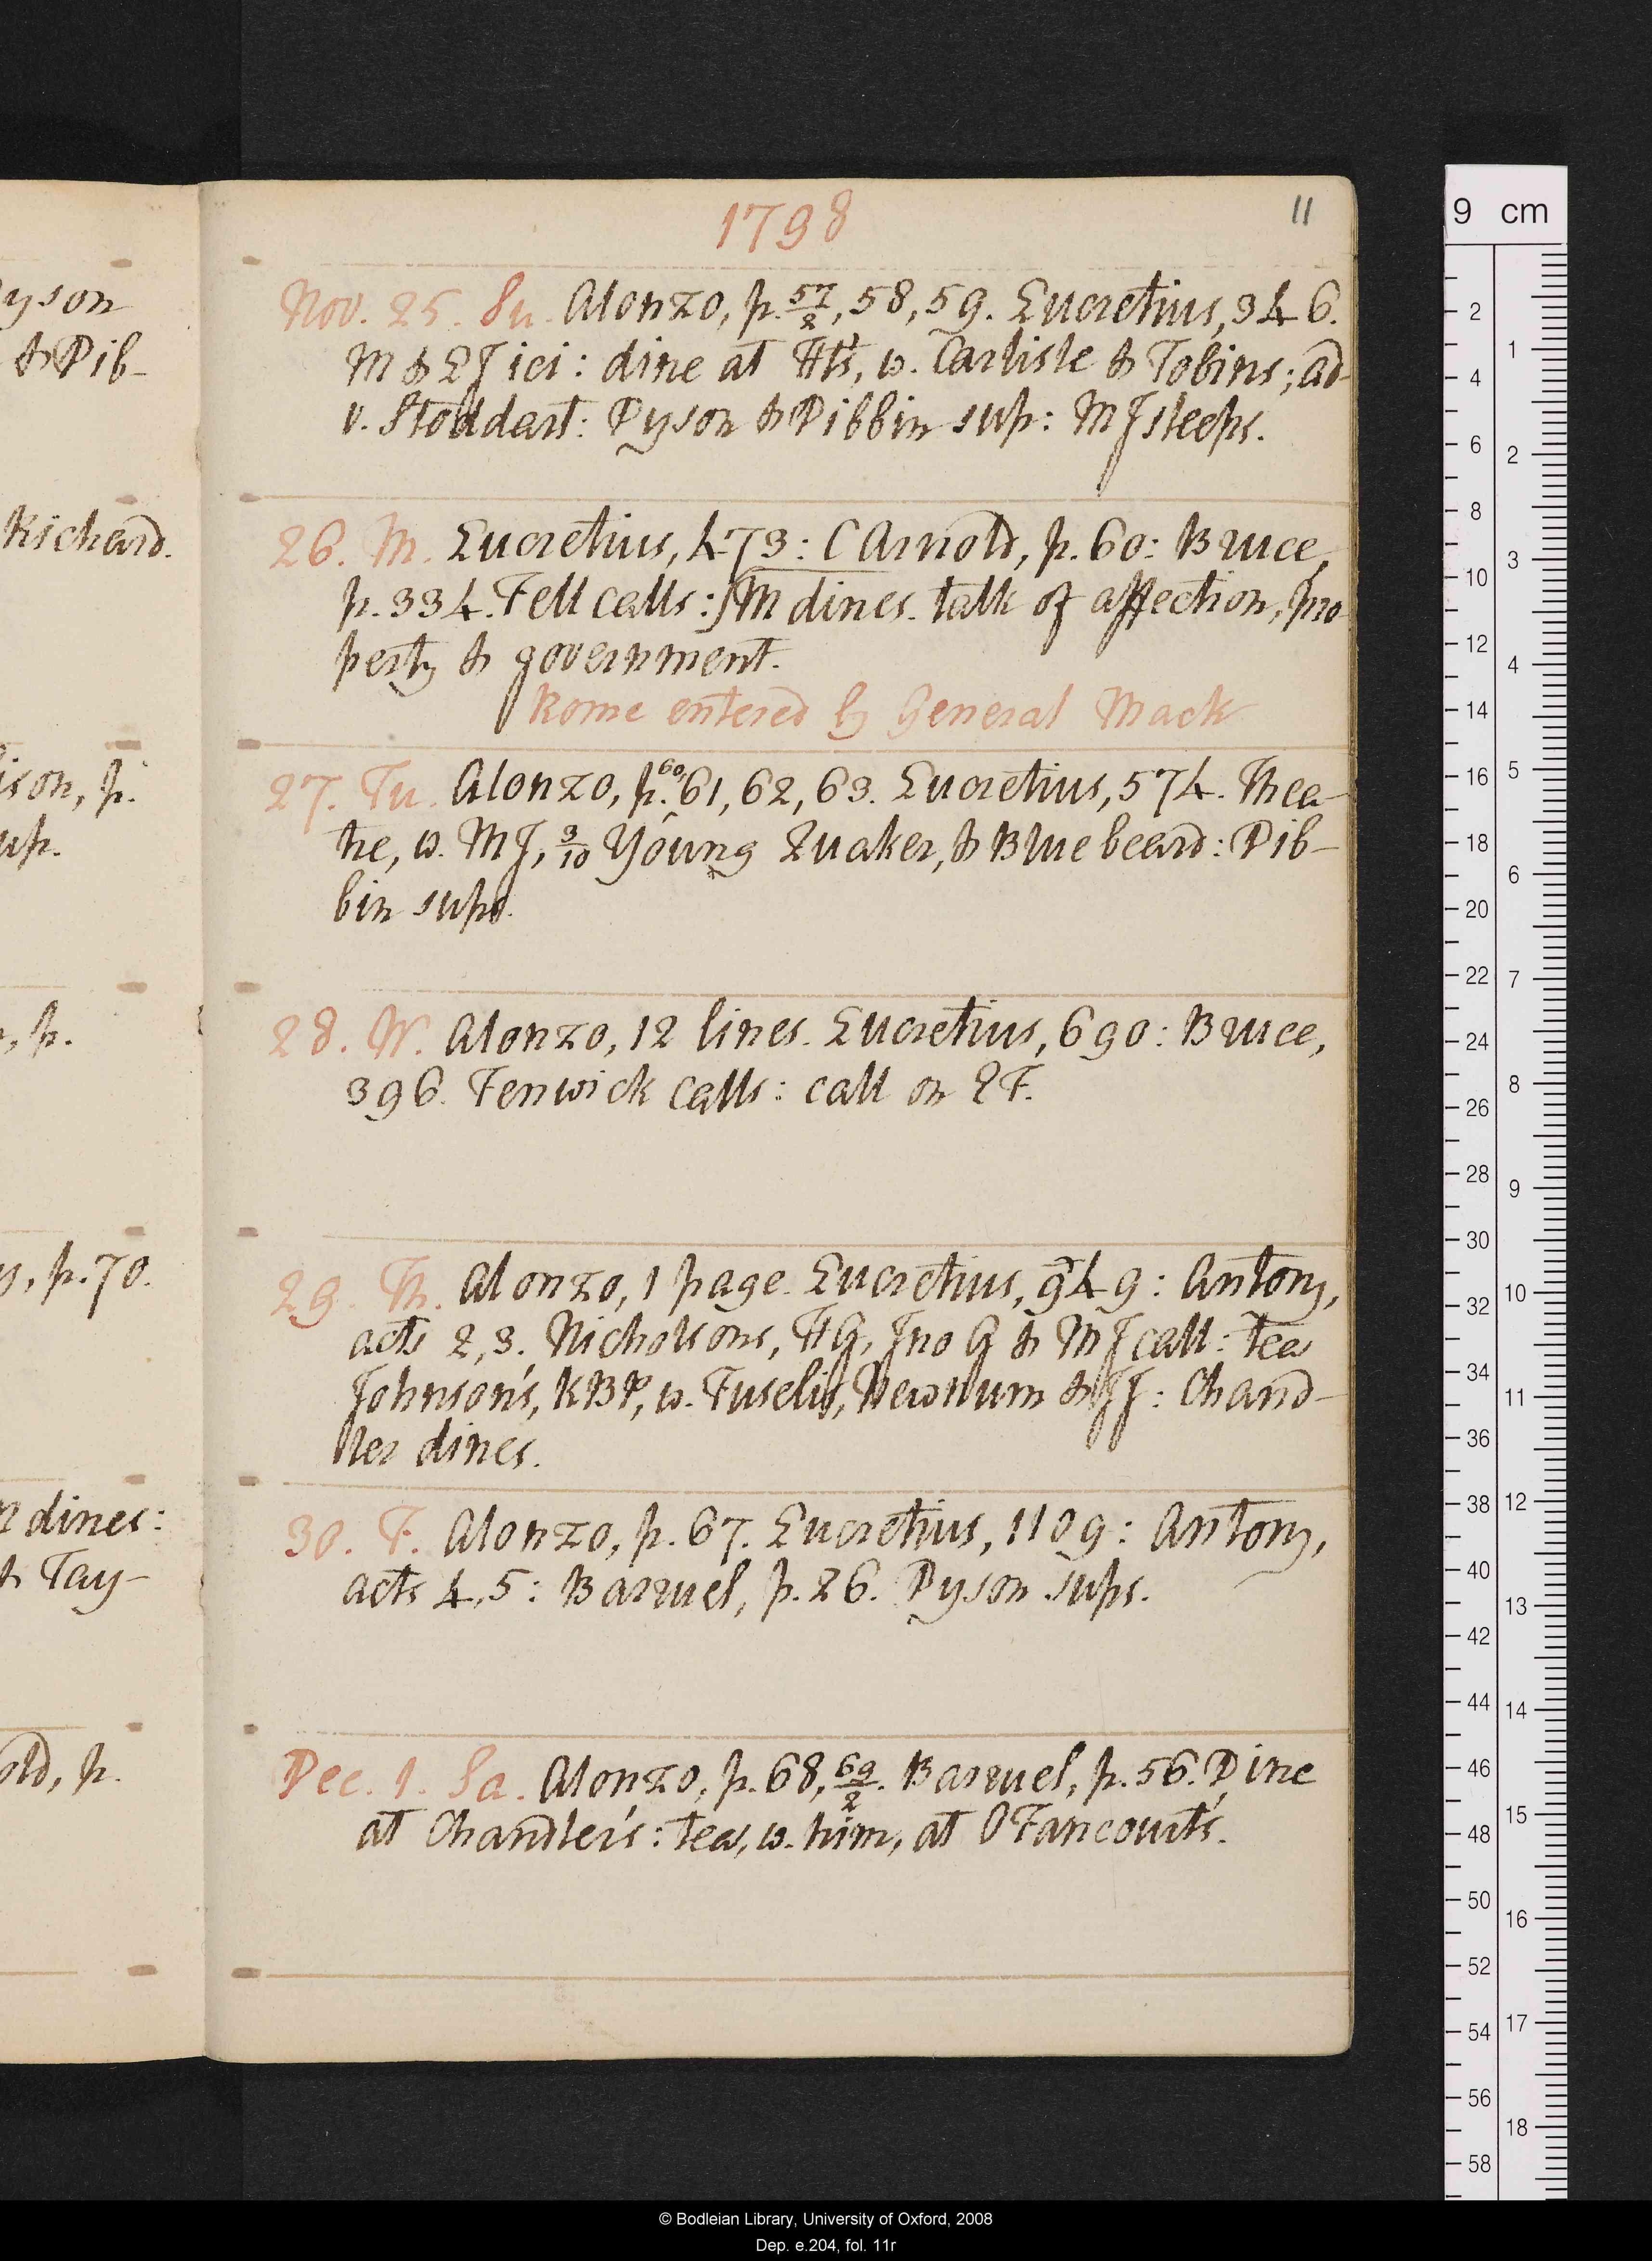 1798
11
Nov. 25. Su. Alonzo, p. 57/2, 58, 59. Lucretius, 346.
M & LJ ici: dine at Ht's, w. Carlisle & Tobins; ad-
v. Stoddart: Dyson & Dibbin sup: MJ sleeps.
26. M. Lucretius, 473: C Arnold, p. 60: Bruce,
p. 334. Fell calls: JM dines. talk of affection, pro
perty & government.
Rome entered by General Mack
27. Tu. Alonzo, p. 60, 61, 62, 63. Lucretius, 574. Thea-
tre, w. MJ, 3/10 Young Quaker, & Blue beard: Dib-
bin sups.
28. W. Alonzo, 12 lines. Lucretius, 690: Bruce,
396. Fenwick calls: call on EF.
29. Th. Alonzo, 1 page. Lucretius, 949: Antony,
acts 2, 3. Nicholsons, HG, Jno G & MJ call: tea
Johnson's, KBP, w. Fuselis, Newnum & JJ: Chand-
ler dines.
30. F. Alonzo, p. 67. Lucretius, 1109: Antony,
acts 4, 5: Barruel, p. 26. Dyson sups.
Dec. 1. Sa. Alonzo, p. 68, 69/2. Barruel, p. 56. Dine
at Chandler's: tea, w. him, at O Fancourt's.
yson
& Dib-
Richard.
ison, p.
up.
, p.
, p. 70.
dines:
& Tay-
old, p.
9 cm
2
4
6
8
10
12
14
16
18
20
22
24
26
28
30
32
34
36
38
40
42
44
46
48
50
52
54
56
58
1
2
3
4
5
6
7
8
9
10
11
12
13
14
15
16
17
18
© Bodleian Library, University of Oxford, 2008
Dep. e.204, fol. 11r